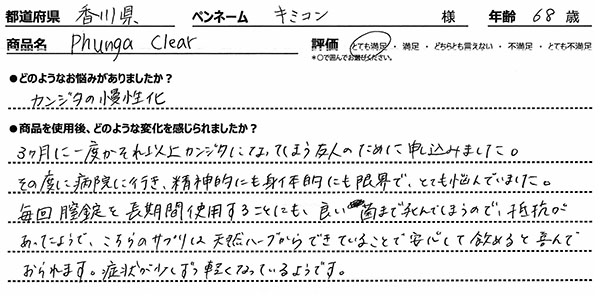 都道府県 香川県 ペンネーム キミコン 様 年齢 68 歳
商品名 Phunga Clear 評価 とても満足 ・ 満足 ・ どちらとも言えない ・ 不満足 ・ とても不満足
*○で囲んでお選びください。
●どのようなお悩みがありましたか？
カンジタの慢性化
●商品を使用後、どのような変化を感じられましたか？
3ヶ月に一度かそれ以上カンジタになってしまう友人のために申し込みました。
その度に病院に行き、精神的にも身体的にも限界で、とても悩んでいました。
毎回膣錠を長期間使用することにも、良い菌まで死んでしまうので、抵抗が
あったようで、こちらのサプリは天然ハーブからできていることで安心して飲めると喜んで
おられます。症状が少しずつ軽くなっているようです。